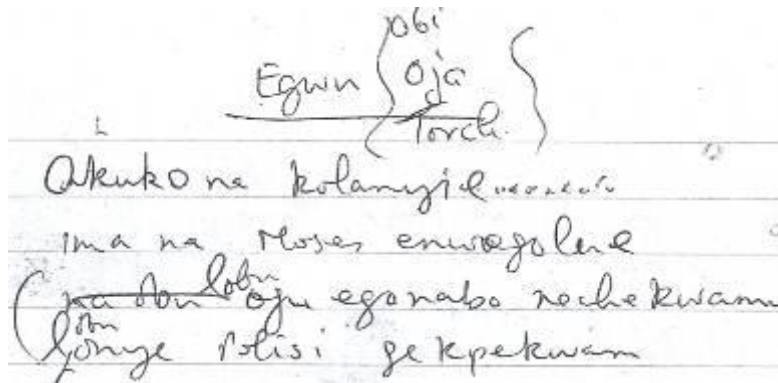 Obi
Egwu { Oja }
Torch.
Akuko na kolanyia
ima na Moses enwegolu
na obu lobu oju egonabo neche kwam
obu onye Polisi ge kpekwam